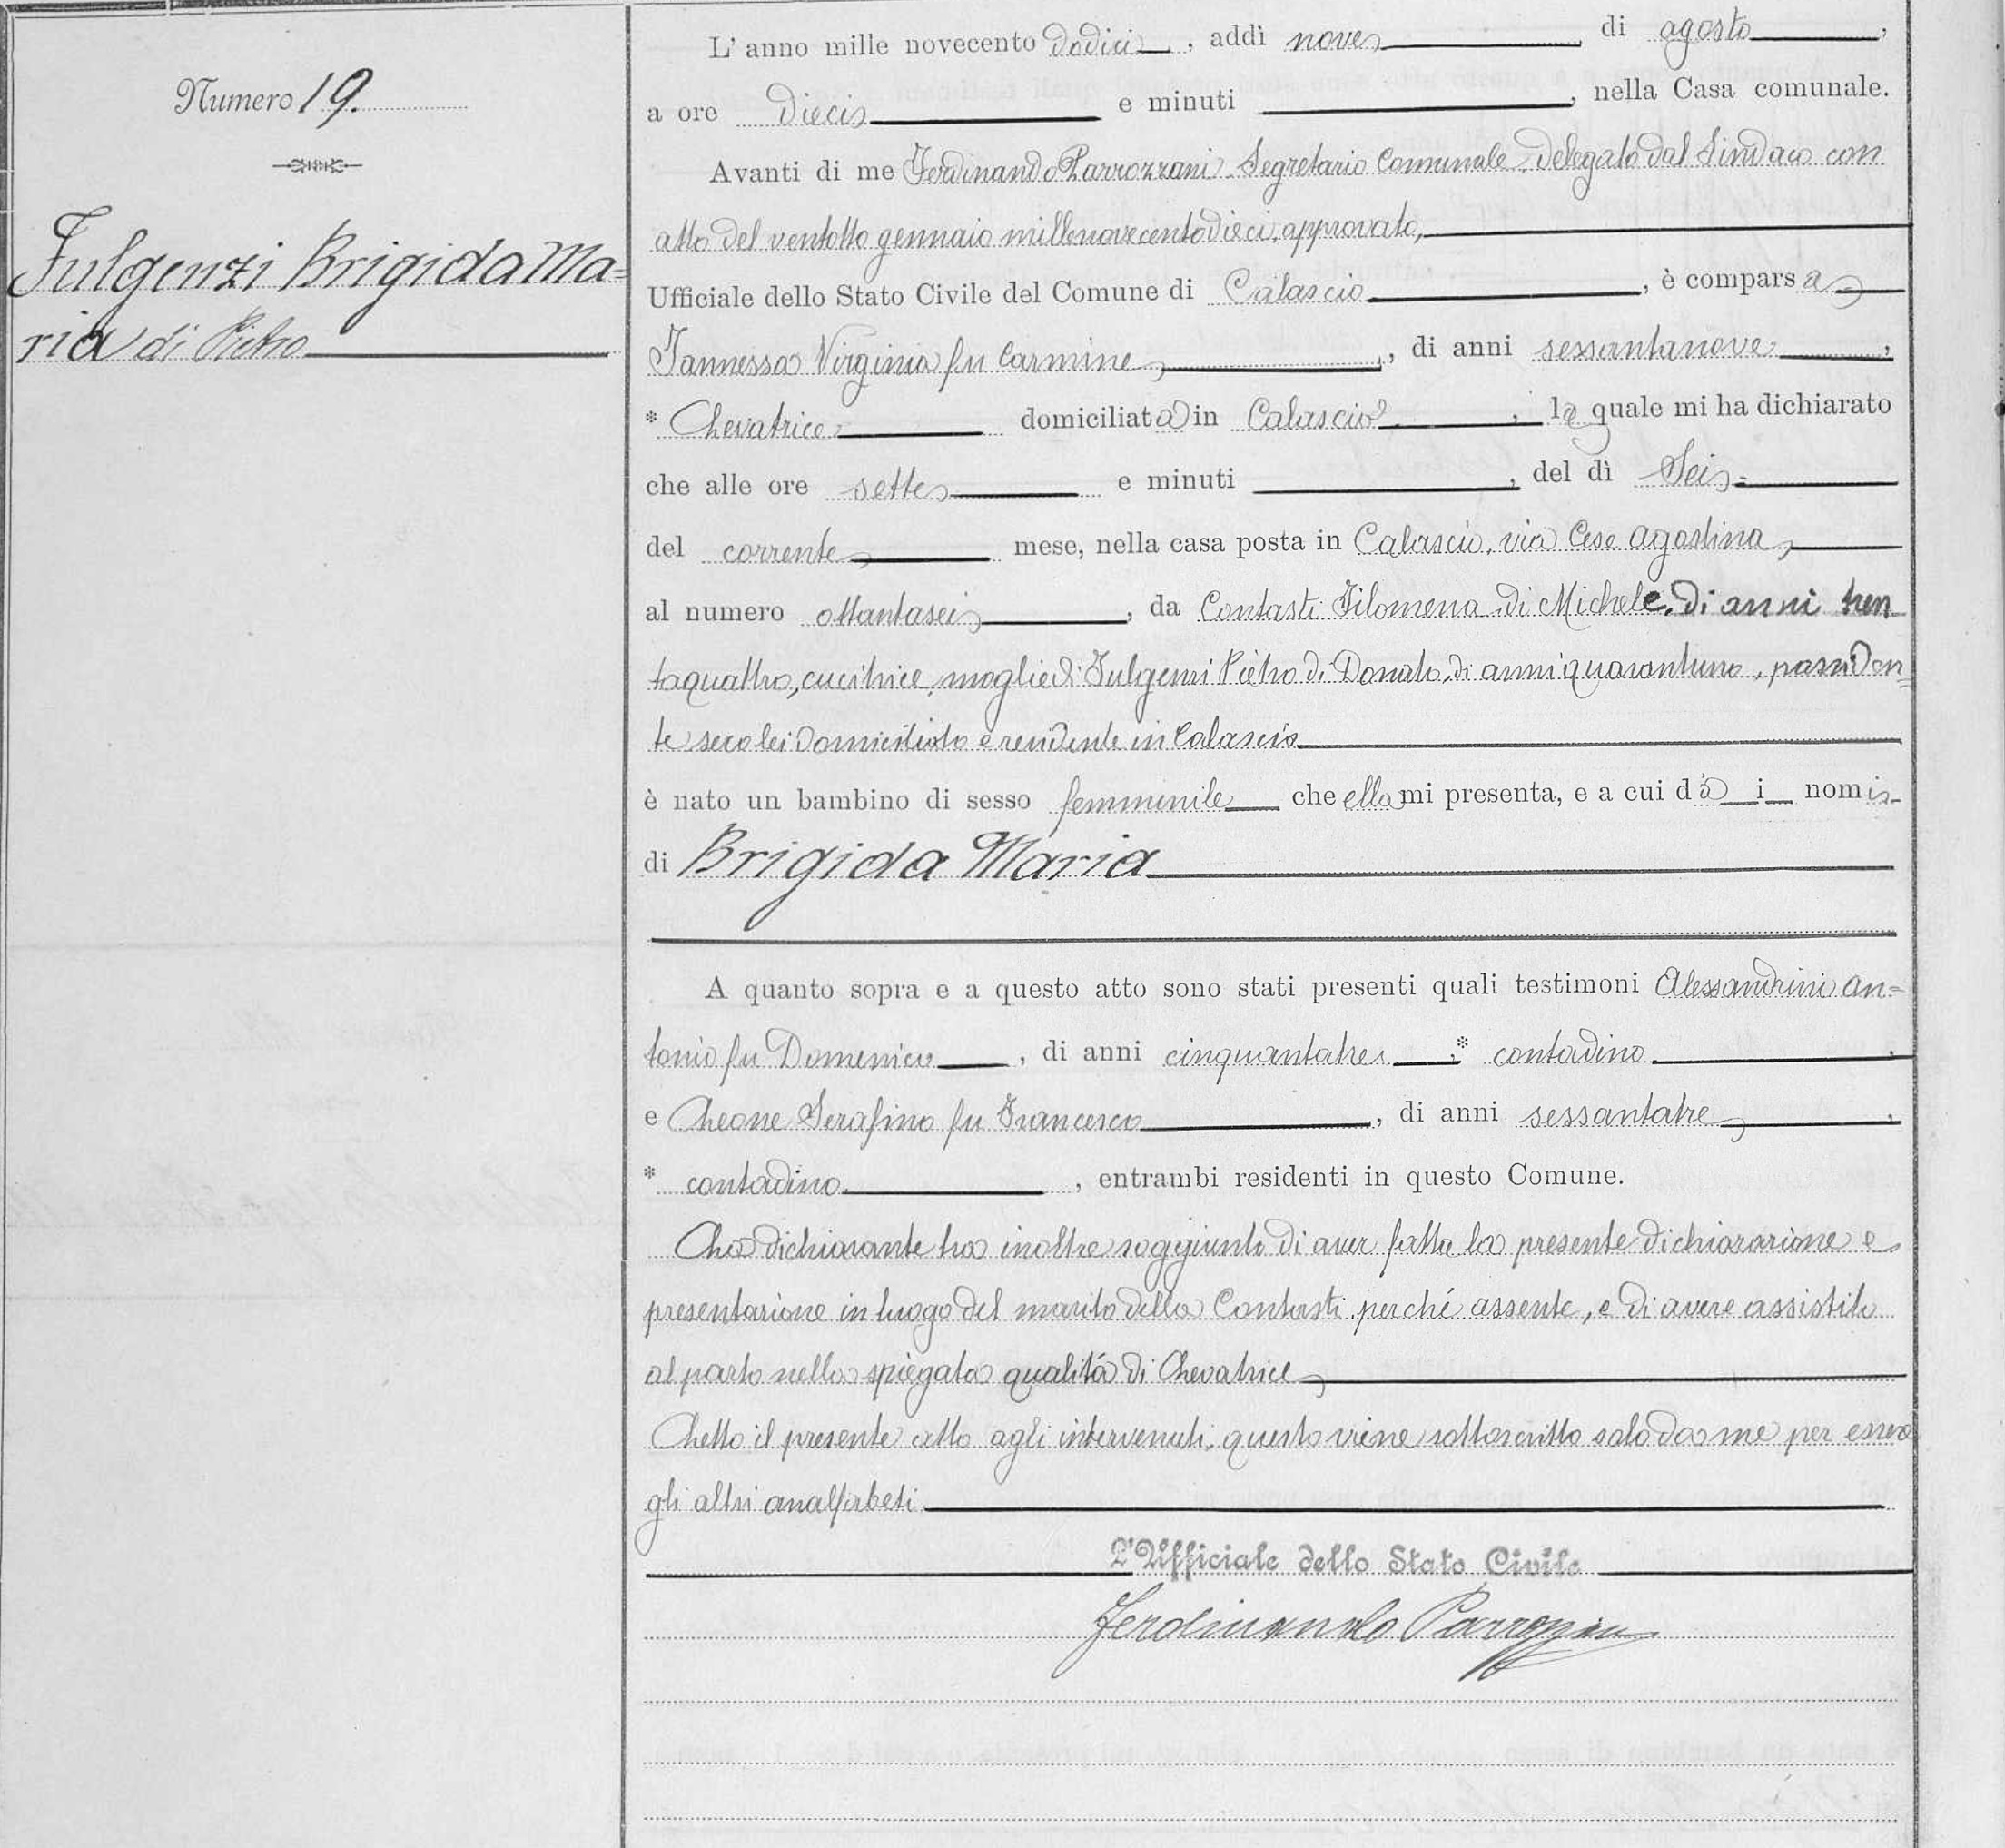 Numero 19.
Fulgenzi Brigida Ma=
ria di Pietro
L'anno mille novecento dodici, addì nove di agosto,
a ore dieci e minuti , nella Casa comunale.
Avanti di me Ferdinando Parrozzani Segretario Comunale delegato dal Sindaco con
atto del ventotto gennaio millenovecentodieci, approvato,
Ufficiale dello Stato Civile del Comune di Calascio, è comparsa
Iannessa Virginia fu Carmine, di anni sessantanove,
* Levatrice domiciliata in Calascio, la quale mi ha dichiarato
che alle ore sette e minuti , del dì Sei
del corrente mese, nella casa posta in Calascio, via Cese Agostina
al numero ottantasei, da Contasti Filomena di Michele, di anni tren
taquattro, cucitrice, moglie di Fulgenzi Pietro di Donato, di anni quarantuno, possiden=
te seco lei domiciliato e residente in Calascio
è nato un bambino di sesso femminile che ella mi presenta, e a cui dà i nomi
di Brigida Maria
A quanto sopra e a questo atto sono stati presenti quali testimoni Alessandrini An=
tonio fu Domenico, di anni cinquantatre, * contadino
e Leone Serafino fu Francesco, di anni sessantatre,
* contadino, entrambi residenti in questo Comune.
La dichiarante ha inoltre soggiunto di aver fatta la presente dichiarazione e
presentazione in luogo del marito della Contasti, perché assente, e di avere assistito
al parto nella spiegata qualità di Levatrice
Letto il presente atto agli intervenuti, questo viene sottoscritto solo da me per essere
gli altri analfabeti.
L'Ufficiale dello Stato Civile
Ferdinando Parrozzani